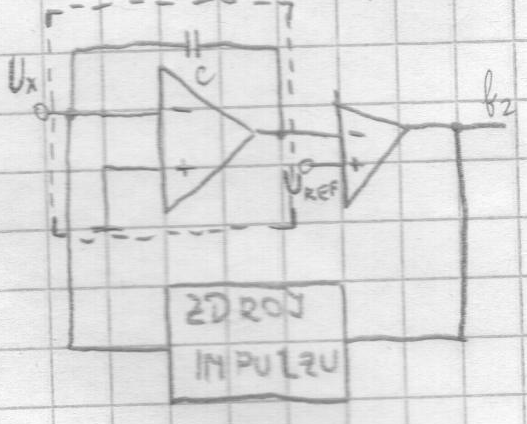 Ux
C
f2
UREF
ZDROJ
IMPULZU